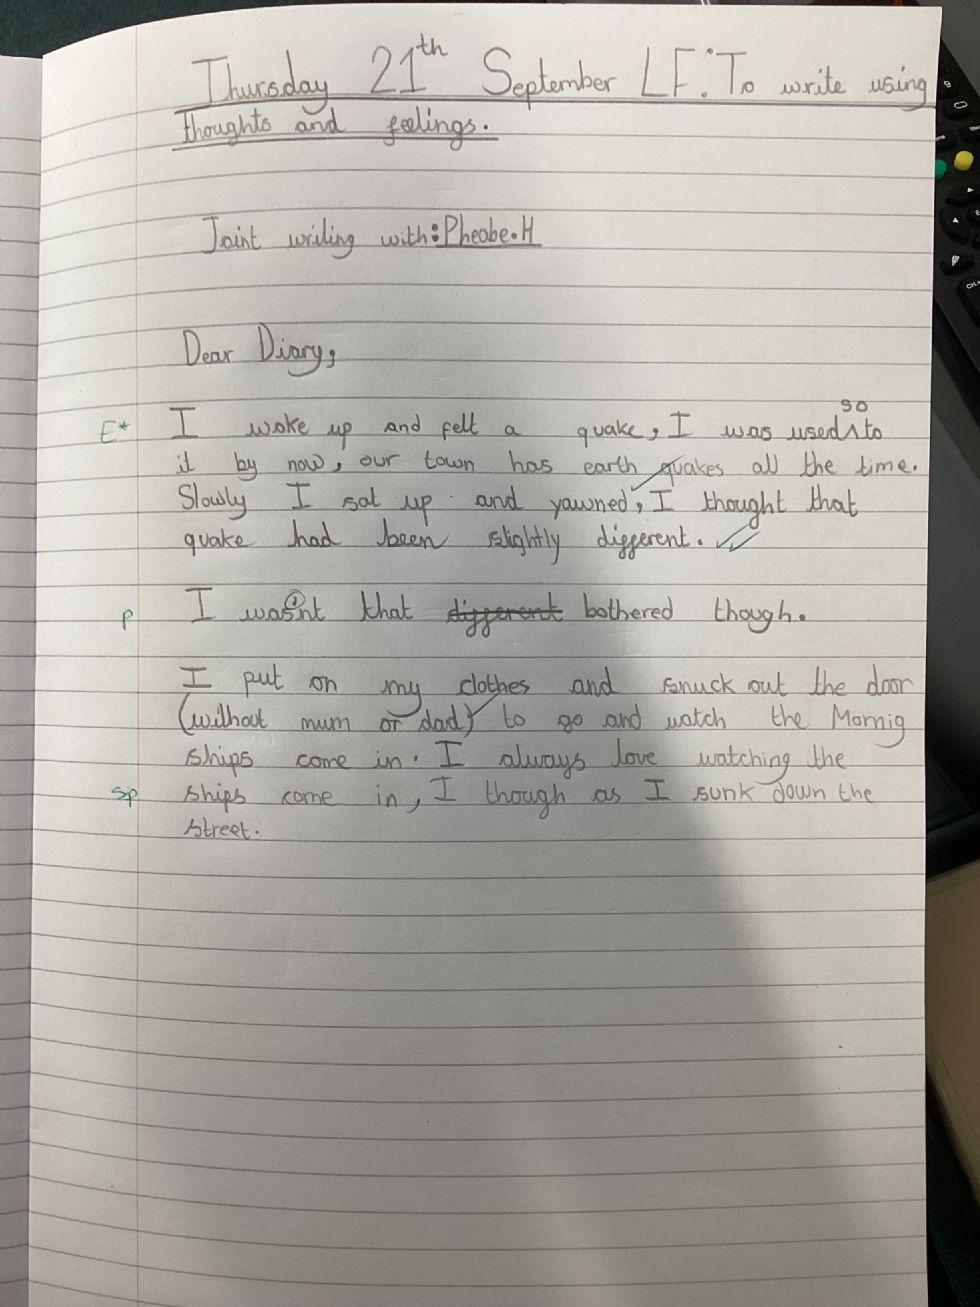 Thursday 21th September LF: To write using
thoughts and feelings.
Joint writing with: Pheobe.H
Dear Diary,
so
E* I woke up and felt a quake, I was used^to
it by now, our town has earth quakes all the time.
Slowly I sat up and yawned, I thought that
quake had been slightly different.
p I wasn't that different bothered though.
I put on my clothes and snuck out the door
(without mum or dad) to go and watch the Mornig
ships come in. I always love watching the
sp ships come in, I though as I sunk down the
street.